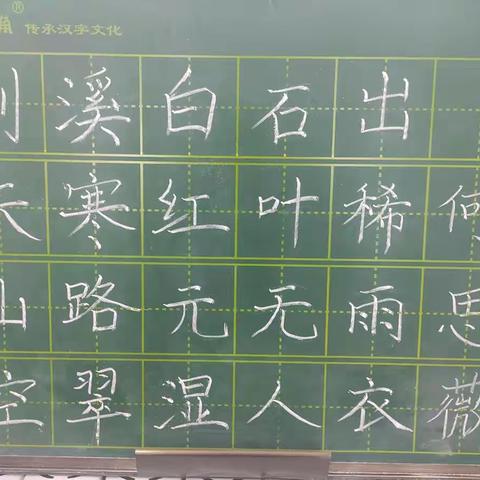 传承汉字文化
溪白石出
天寒红叶稀何
山路元无雨思
空翠湿人衣薇